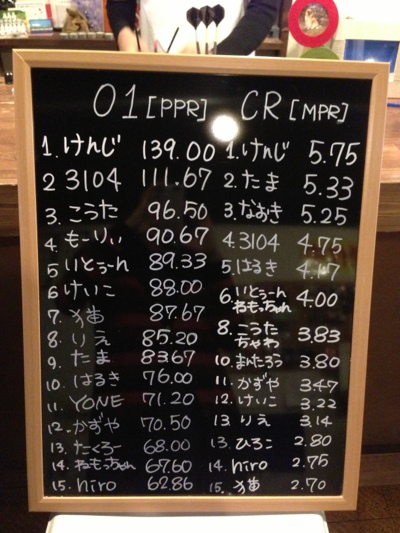 01 [PPR] CR [MPR]
1. けんじ 139.00 1. けんじ 5.75
2 3104 111.67 2. たま 5.33
3. こうた 96.50 3. なおき 5.25
4. もーりぃ 90.67 4. 3104 4.75
5 いとぅーん 89.33 5. はるき 4.17
6 けいこ 88.00 6. いとぅーん ねもっちゃん 4.00
7. 猫 87.67
8. りえ 85.20 8. こうた ちゃわ 3.83
9. たま 83.67 10. まんたろう 3.80
10. はるき 76.00 11. かずや 3.47
11. YONE 71.20 12. けいこ 3.22
12. かずや 70.50 13. りえ 3.14
13. たくろー 68.00 13. ひろこ 2.80
14. ねもっちゃん 67.60 14. hiro 2.75
15. hiro 62.86 15. 猫 2.70